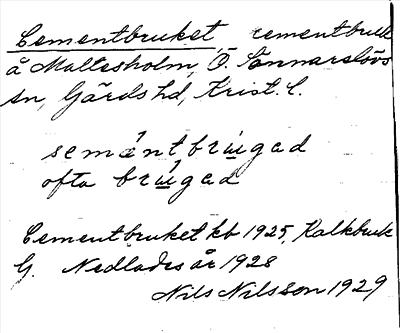 Cementbruket, cementbruk
å Maltesholm, Ö. Sönnarslövs
sn, Gärds hd, Krist. l.
semäntbrúgad
ofta brúgad
Cementbruket kb 1925, Kalkbruk
G. Nedlades år 1928
Nils Nilsson 1929